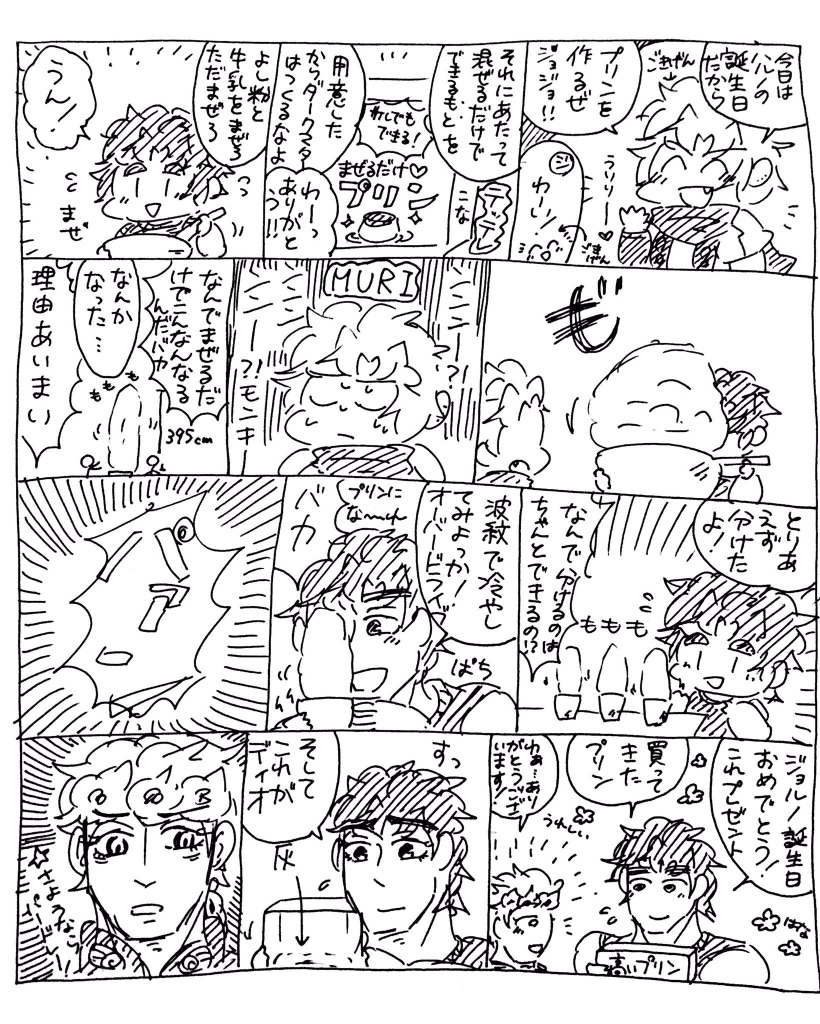 今日は
ハルノの
誕生日
だから
ごきげん
プリンを
作るぜ
ジョジョ!!
うりりー♡
ごきげん
ジ
わーい!
それにあたって
混ぜるだけで
できるもとを
テッテレ
こな
用意した
からダークマター
はつくるなよ
わーっ
ありがと
う!!
わしでも
できる!
まぜるだけ♡
プリン
よし粉と
牛乳をまぜろ
ただまぜろ
うん!
まぜ
も゛
MURI
ンニー?!
ンニー?!モンキ
なんでまぜるだ
けでこんなんなる
んだバカ
なんか
なった…
ももも
395cm
理由あいまい
とりあ
えず
分けた
よ!
ももも
なんで分けるのは
ちゃんとできるの!?
波紋で冷やし
てみよっか!
オーバードライブ
ぱち
プリンに
な〜れ
バカ
ジョルノ誕生日
おめでとう!
これプレゼント
買って
きた
プリン
わぁ…あり
がとうござ
います!
うれしい
はな
高いプリン
すっ
そして
これが
ディオ
灰
☆さようなら
パードレ